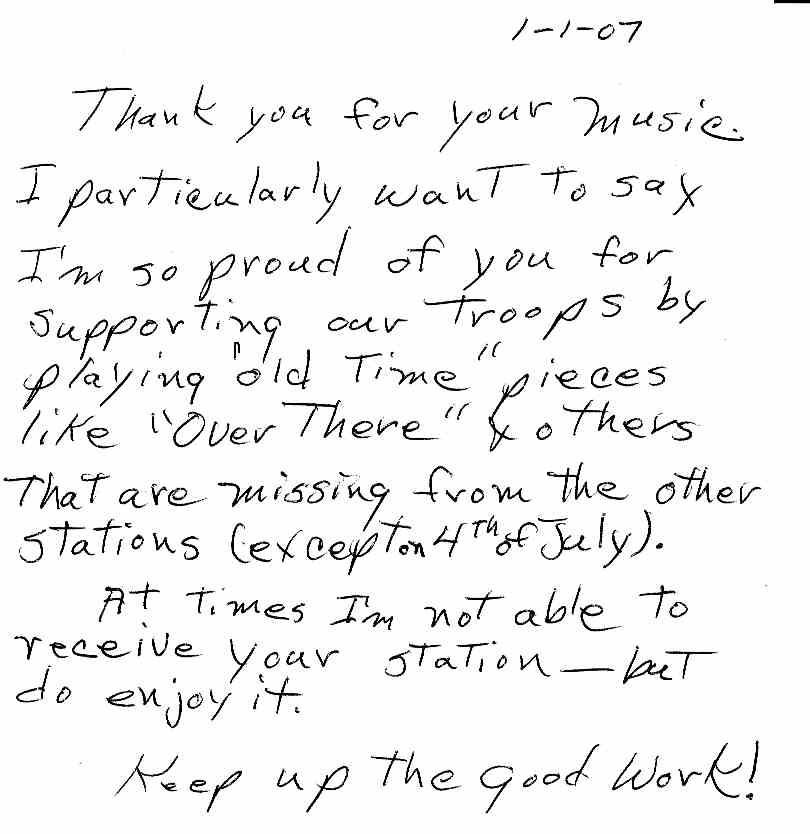 1-1-07
Thank you for your music.
I particularly want to say
I'm so proud of you for
supporting our troops by
playing "old time" pieces
like "Over There" & others
that are missing from the other
stations (except on 4th of July).
At times I'm not able to
receive your station — but
do enjoy it.
Keep up the good work!